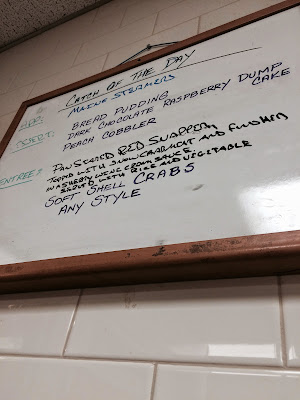 CATCH OF THE DAY
APP: MAINE STEAMERS
DESERT: BREAD PUDDING
DARK CHOCOLATE RASPBERRY DUMP CAKE
PEACH COBBLER
ENTREE: PAN SEARED RED SNAPPER
TOPPED WITH SNOWCRABMEAT AND FINISHED
IN A SHERRY WINE CREAM SAUCE
SERVED WITH RICE AND VEGETABLE
SOFT SHELL CRABS
ANY STYLE